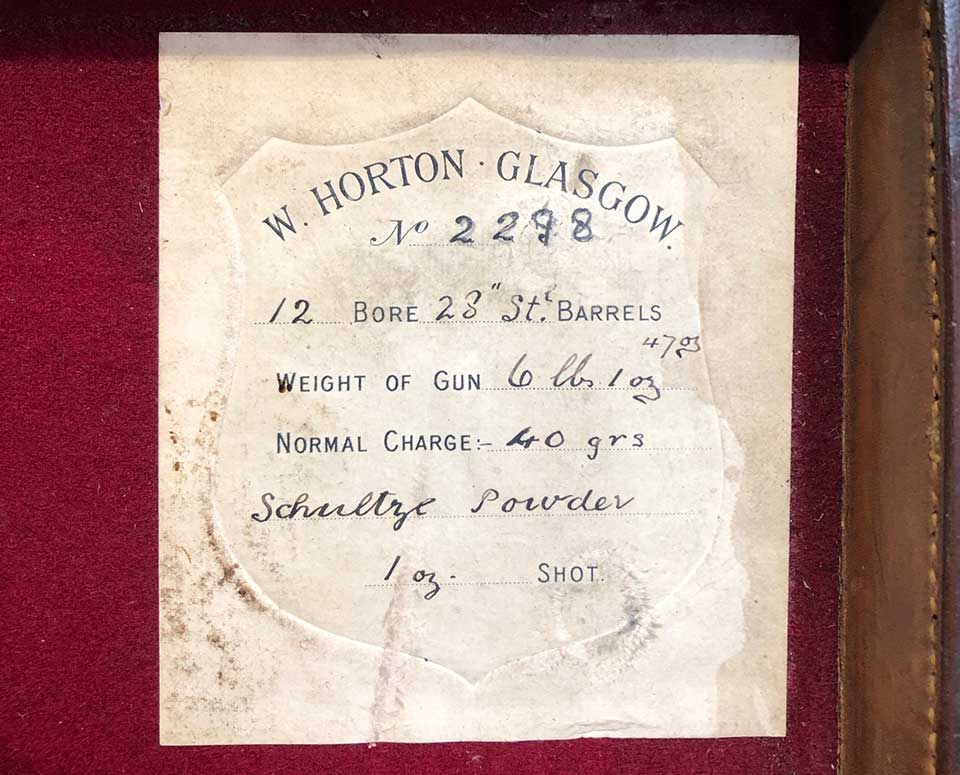 W. HORTON · GLASGOW.
No 2298
12 BORE 28" St.l BARRELS
47 oz
WEIGHT OF GUN 6 lbs 1 oz
NORMAL CHARGE:- 40 grs
Schultze Powder
1 oz. SHOT.